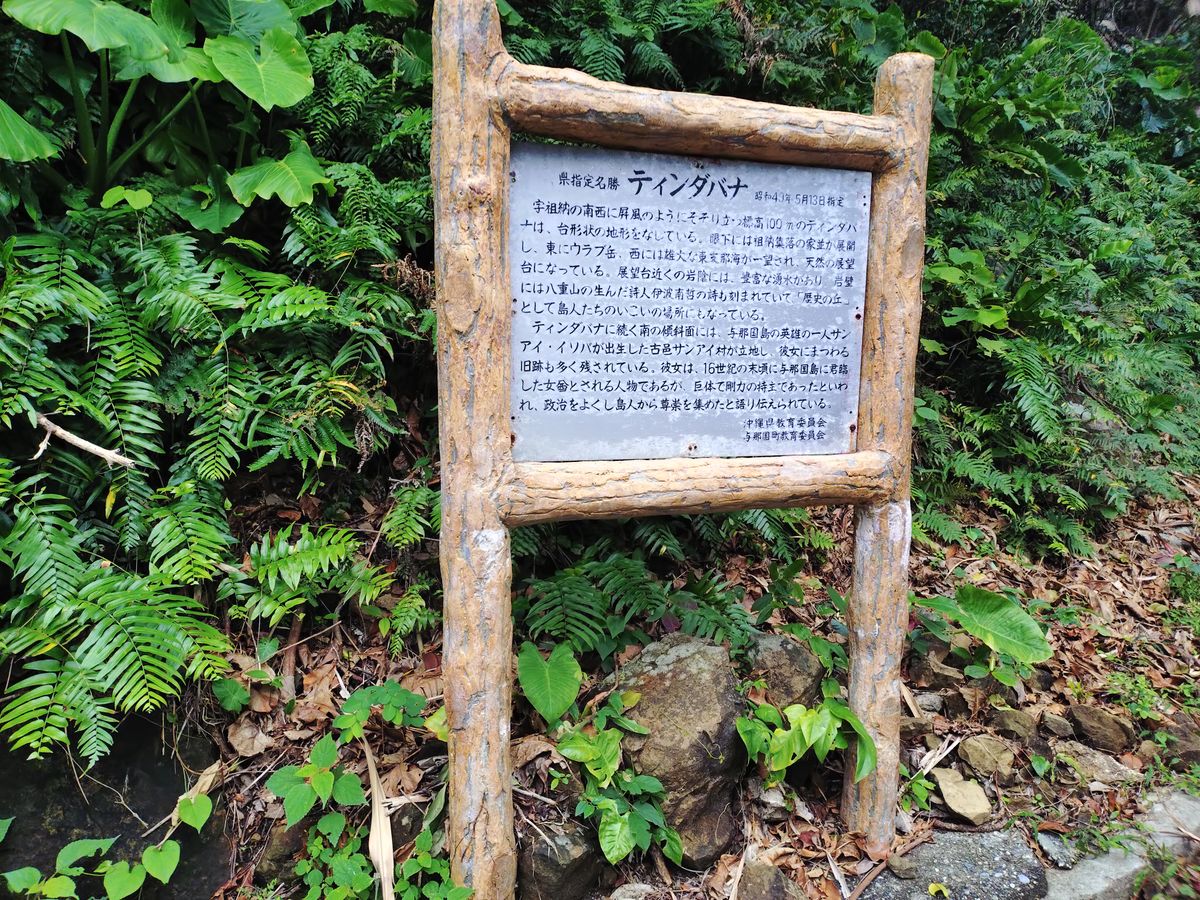 県指定名勝 ティンダバナ 昭和49年5月13日指定
字祖納の南西に屏風のようにそそり立つ標高100mのティンダバ
ナは、台形状の地形をなしている。眼下には祖納集落の家並が展開
し、東にウラブ岳、西には雄大な東支那海が一望され、天然の展望
台になっている。展望台近くの岩陰には、豊富な湧水があり、岩壁
には八重山の生んだ詩人伊波南哲の詩も刻まれていて「歴史の丘」
として島人たちのいこいの場所にもなっている。
ティンダバナに続く南の傾斜面には、与那国島の英雄の一人サン
アイ・イソバが出生した古邑サンアイ村が立地し、彼女にまつわる
旧跡も多く残されている。彼女は、16世紀の末頃に与那国島に君臨
した女酋とされる人物であるが、巨体で剛力の持主であったといわ
れ、政治をよくし島人から尊崇を集めたと語り伝えられている。
沖縄県教育委員会
与那国町教育委員会